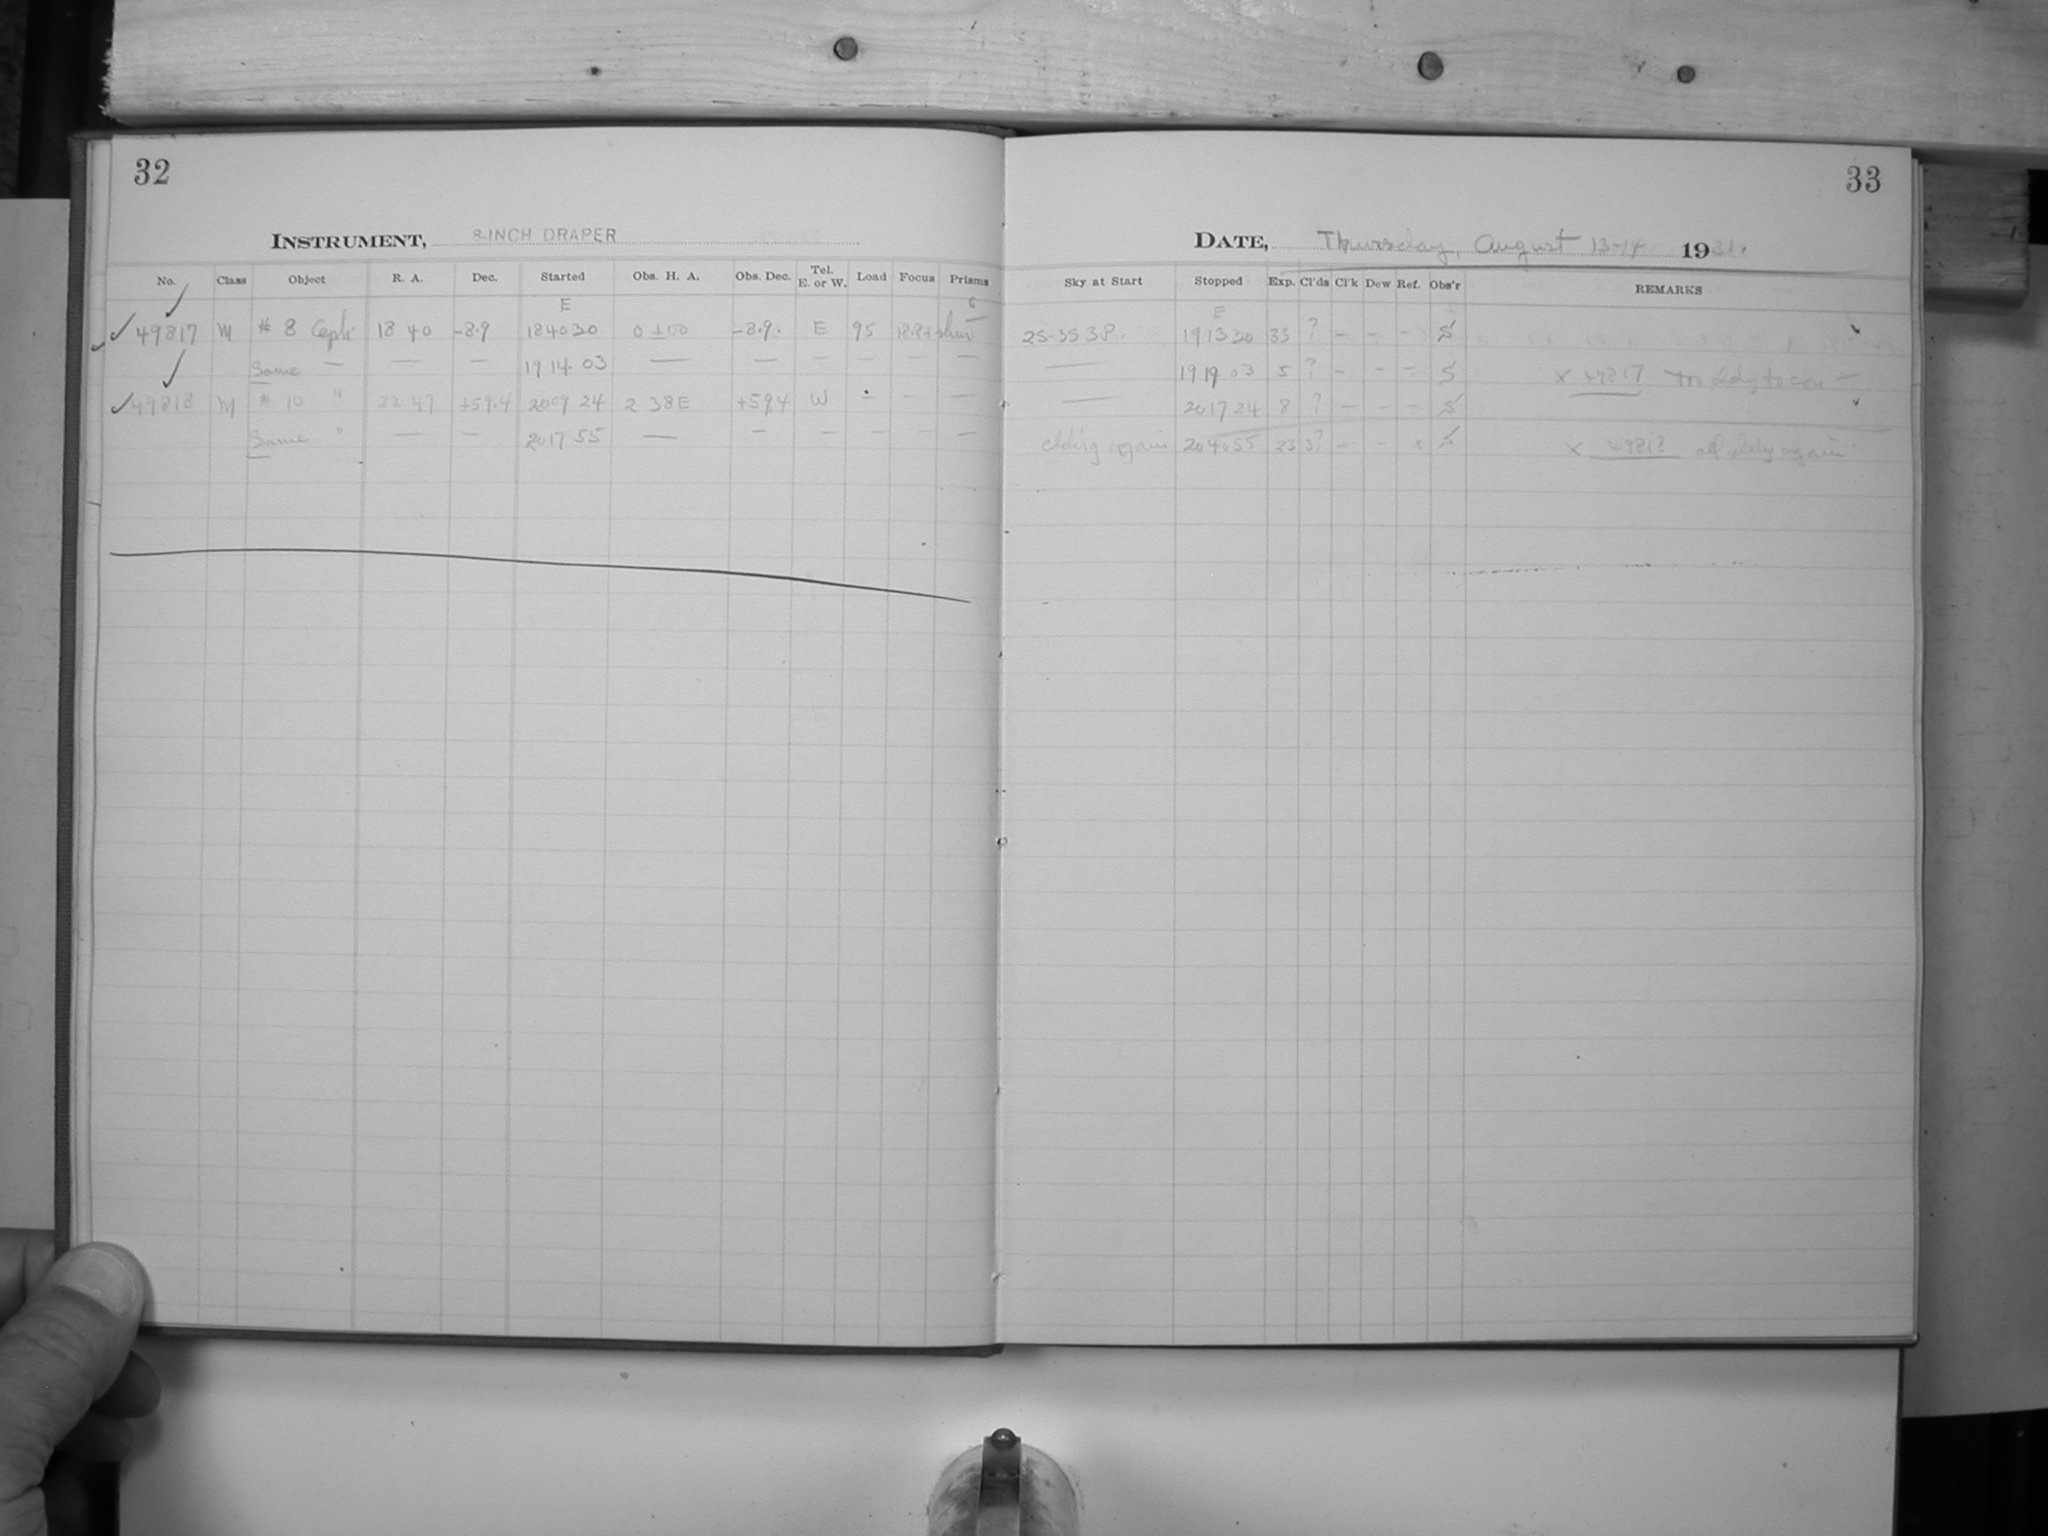 32
INSTRUMENT, 8-INCH DRAPER
No. Class Object R. A. Dec. Started Obs. H. A. Obs. Dec. Tel. E. or W. Load Focus Prisms
E
49817 M # 8 Ceph 18 40 -8.9 18 40 30 0 ± 00 -8.9. E 95
Same — — — 19 14 03 — — — — — —
49818 M # 10 " 22 47 +59.4 20 09 24 2 38 E +59.4 W
Same " — — 20 17 55 — — — — — —
33
DATE, Thursday, August 13-14 1931.
Sky at Start Stopped Exp. Cl'ds Cl'k Dew Ref. Obs'r REMARKS
E
25-35 3P. 19 13 30 33 ? — — — S
— 19 19 03 5 ? — — — S x 49817
— 20 17 24 8 ? — — — S
again 20 40 55 23 3? — — x S x 49818 again